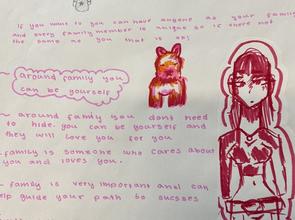 if you want to you can have anyone as your family
and every family member is unique so is there not
the same as you that is ok!
~ around family you
can be yourself
~ around family you dont need
to hide. you can be yourself and
they will love you for
family is someone who cares about
you and loves you.
family is very important and can
help guide your path to sucsess